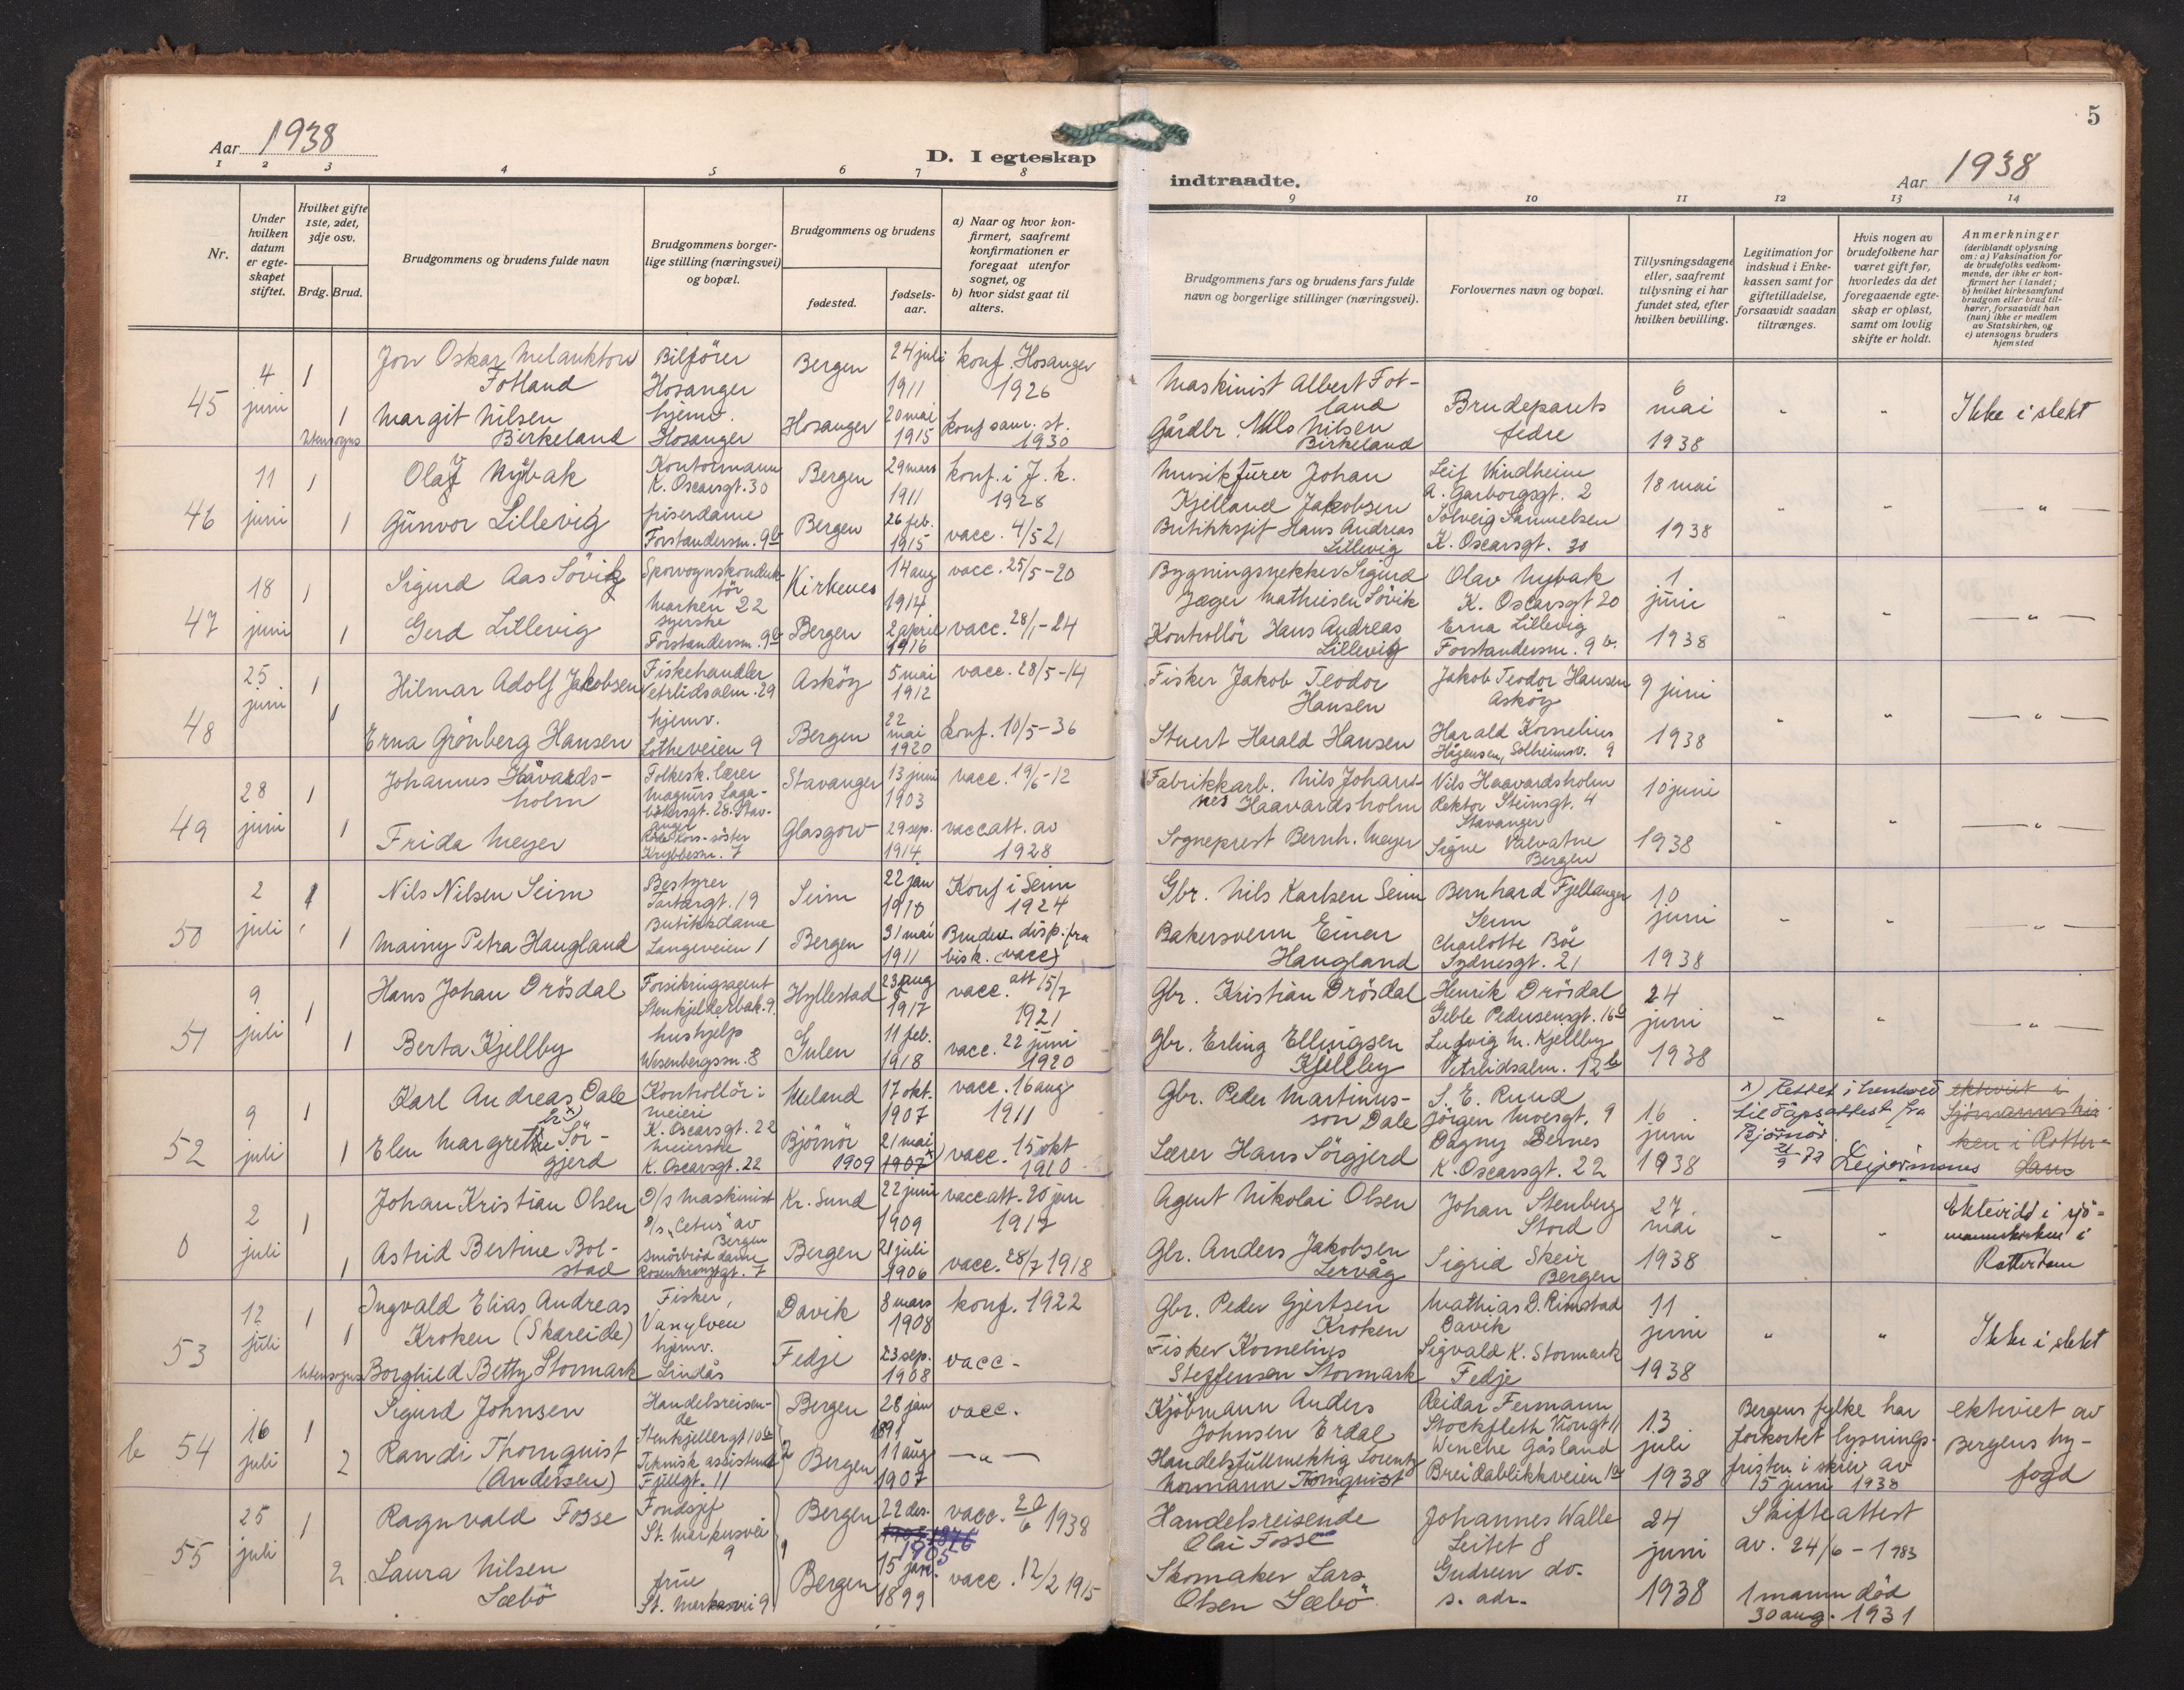 5
Aar 1938
D. I egteskap
indtraadte.
Aar 1938
1 2 3 4 5 6 7 8
9 10 11 12 13 14
Nr.
Under hvilken datum er egteskapet stiftet.
Hvilket gifte 1ste, 2det, 3dje osv.
Brdg. Brud.
Brudgommens og brudens fulde navn
Brudgommens borgerlige stilling (næringsvei) og bopæl.
Brudgommens og brudens
fødested.
fødselsaar.
a) Naar og hvor konfirmert, saafremt konfirmationen er foregaat utenfor sognet, og
b) hvor sidst gaat til alters.
Brudgommens fars og brudens fars fulde navn og borgerlige stillinger (næringsvei).
Forlovernes navn og bopæl.
Tillysningsdagene eller, saafremt tillysning ei har fundet sted, efter hvilken bevilling.
Legitimation for indskud i Enkekassen samt for giftetilladelse, forsaavidt saadan tiltrænges.
Hvis nogen av brudefolkene har været gift før, hvorledes da det foregaaende egteskap er opløst, samt om lovlig skifte er holdt.
Anmerkninger
(deriblandt oplysning om: a) Vaksination for de brudefolks vedkommende, der ikke er konfirmert her i landet;
b) hvilket kirkesamfund brudgom eller brud tilhører, forsaavidt han (hun) ikke er medlem av Statskirken, og
c) utensogns bruders hjemsted
45 4 juni 1 Jon Oskar Melankton Fotland Bilfører Hosanger Bergen 24 juli 1911 konf. Hosanger 1926
1 utensogns Margit Nilsen Birkeland hjemv. Hosanger Hosanger 20 mai 1915 konf sam. st. 1930
Maskinist Albert Fotland
Gårdbr. Nils Nilsen Birkeland
Brudeparets fedre
6 mai 1938 " " Ikke i slekt
46 11 juni 1 Olav Nybak Kontormann K. Oscarsgt. 30 Bergen 29 mars 1911 konf. i J. k. 1928
1 Gunvor Lillevig friserdame Forstandersm. 9b Bergen 26 feb. 1915 vacc. 4/5 21
Musikfürer Johan Kjelland Jakobsen
Butikksjef Hans Andreas Lillevig
Leif Vindheim A. Garborgsgt. 2
Solveig Samuelsen K. Oscarsgt. 30
18 mai 1938 " " — " —
47 18 juni 1 Sigurd Aas Sövik Sporvognskonduktör Marken 22 Kirkenes 14 aug 1914 vacc. 25/5-20
1 Gerd Lillevig syerske Forstandersm. 9b Bergen 2 april 1916 vacc. 28/1-24
Bygningsnekker Sigurd Jæger Mathiesen Sövik
Kontrollör Hans Andreas Lillevig
Olav Nybak K. Oscarsgt 20
Erna Lillevig Forstandersm. 9 b.
1 juni 1938 " " — " —
48 25 juni 1 Hilmar Adolf Jakobsen Fiskehandler Vetrlidsalm. 29 Asköy 5 mai 1912 vacc. 28/5-14
1 Erna Grönberg Hansen hjemv. Lotheveien 9 Bergen 22 mai 1920 konf. 10/5-36
Fisker Jakob Teodor Hansen
Stuert Harald Hansen
Jakob Teodor Hansen Asköy
Harald Kornelius Hågensen, Solheimsv. 9
9 juni 1938 " " — " —
49 28 juni 1 Johannes Håvardsholm Folkesk. lærer Magnus Lagabötersgt. 28. Stavanger Stavanger 13 juni 1903 vacc. 19/6-12
1 Frida Meyer Röde Kors-söster Krybbesm. 7 Glasgow 29 sep. 1914 vaccatt. av 1928
Fabrikkarb. Nils Johannes Haavardsholm
Sogneprest Bernh. Meyer
Nils Haavardsholm Rektor Steinsgt. 4 Stavanger
Signe Valvatne Bergen
10 juni 1938 " " — " —
50 2 juli 1 Nils Nilsen Seim Bestyrer Tartargt. 19 Seim 22 jan 1910 Konf i Seim 1924
1 Mainy Petra Haugland Butikkdame Langeveien 1 Bergen 31 mai 1911 Bruden disp. fra bisk. (vacc)
Gbr. Nils Karlsen Seim
Bakersvenn Einar Haugland
Bernhard Fjellanger Seim
Charlotte Böe Sydnesgt. 21
10 juni 1938 " " — " —
51 9 juli 1 Hans Johan Drösdal Forsikringsagent Stenkjellerbak. 9 Hyllestad 23 aug 1917 vacc. att 15/7 1921
1 Berta Kjellby hushjelp Wesenbergssm. 8 Gulen 11 feb. 1918 vacc. 22 juni 1920
Gbr. Kristian Drösdal
Gbr. Erling Ellingsen Kjellby
Henrik Drösdal Geble Pedersensgt. 16b
Ludvig M. Kjellby Vetrlidsalm. 12b
24 juni 1938 " " — " —
52 9 juli 1 Karl Andreas Dale Kontrollör i meieri K. Oscarsgt. 22 Meland 17 okt. 1907 vacc. 16 aug 1911
1 Elen Margrethe x) Sörgjerd meierske K. Oscarsgt. 22 Björnör 21 mai 1907 x) 1909 vacc. 15 okt 1910
Gbr. Peder Martinusson Dale
Lærer Hans Sörgjerd
S. E. Ruud Jörgen Moesgt. 9
Dagny Dernes K. Oscarsgt. 22
16 juni 1938
x) Rettet i henhold til dåpsattest fra Björnör 21/9 72
ektviet i Sjömannskirken i Rotterdam
0 2 juli 1 Johan Kristian Olsen D/s maskinist s/s "Cetus" av Bergen Kr. Sund 22 juni 1909 vaccatt. 20 jan 1917
1 Astrid Bertine Bolstad smörbröddame Rosenkrantzgt. 7 Bergen 21 juli 1906 vacc. 28/7 1918
Agent Nikolai Olsen
Gbr. Anders Jakobsen Lervåg
Johan Stenberg Stord
Sigrid Skeir Bergen
27 mai 1938 " " Ektevidd i sjömannskirken i Rotterdam
53 12 juli 1 Ingvald Elias Andreas Kroken (Skareide) Fisker, Vanylven Davik 8 mars 1908 konf. 1922
1 utensogns Borghild Betty Stormark hjemv. Lindås Fedje 23 sep. 1908 vacc.
Gbr. Peder Gjertsen Kroken
Fisker Kornelius Steffensen Stormark
Mathias D. Rimstad Davik
Sigvald K. Stormark Fedje
11 juni 1938 " " Ikke i slekt
b 54 16 juli 1 Sigurd Johnsen Handelsreisende Stenkjellergt 10b Bergen 28 jan 1891 vacc.
2 Randi Thornquist (Andersen) Teknisk assistent Fjellgt. 11 Bergen 11 aug 1907 — " —
Kjöbmann Anders Johnsen Erdal
Handelsfullmektig Lorentz Normann Thornquist
Reidar Fermann Stockfleth Viergt 11
Wenche Gåsland Breidablikkveien 1a
13 juli 1938
Bergens fylke har forkortet lysningsfristen i skriv av 15 juni 1938
ektviet av Bergens byfogd
55 25 juli 1 Ragnvald Fosse Fondsjef St. Markusvei 9 Bergen 22 des. 1905 vacc. 20/6 1938
2 Laura Nilsen Sæbö frue St. Markusvei 9 Bergen 15 jan. 1899 vacc. 12/2 1915
Handelsreisende Olai Fosse
Skomaker Lars Olsen Sæbö
Johannes Walle Leitet 8
Gudrun do. s. adr.
24 juni 1938
Skifteattest av. 24/6 - 1983
1 mann död 30 aug. 1931